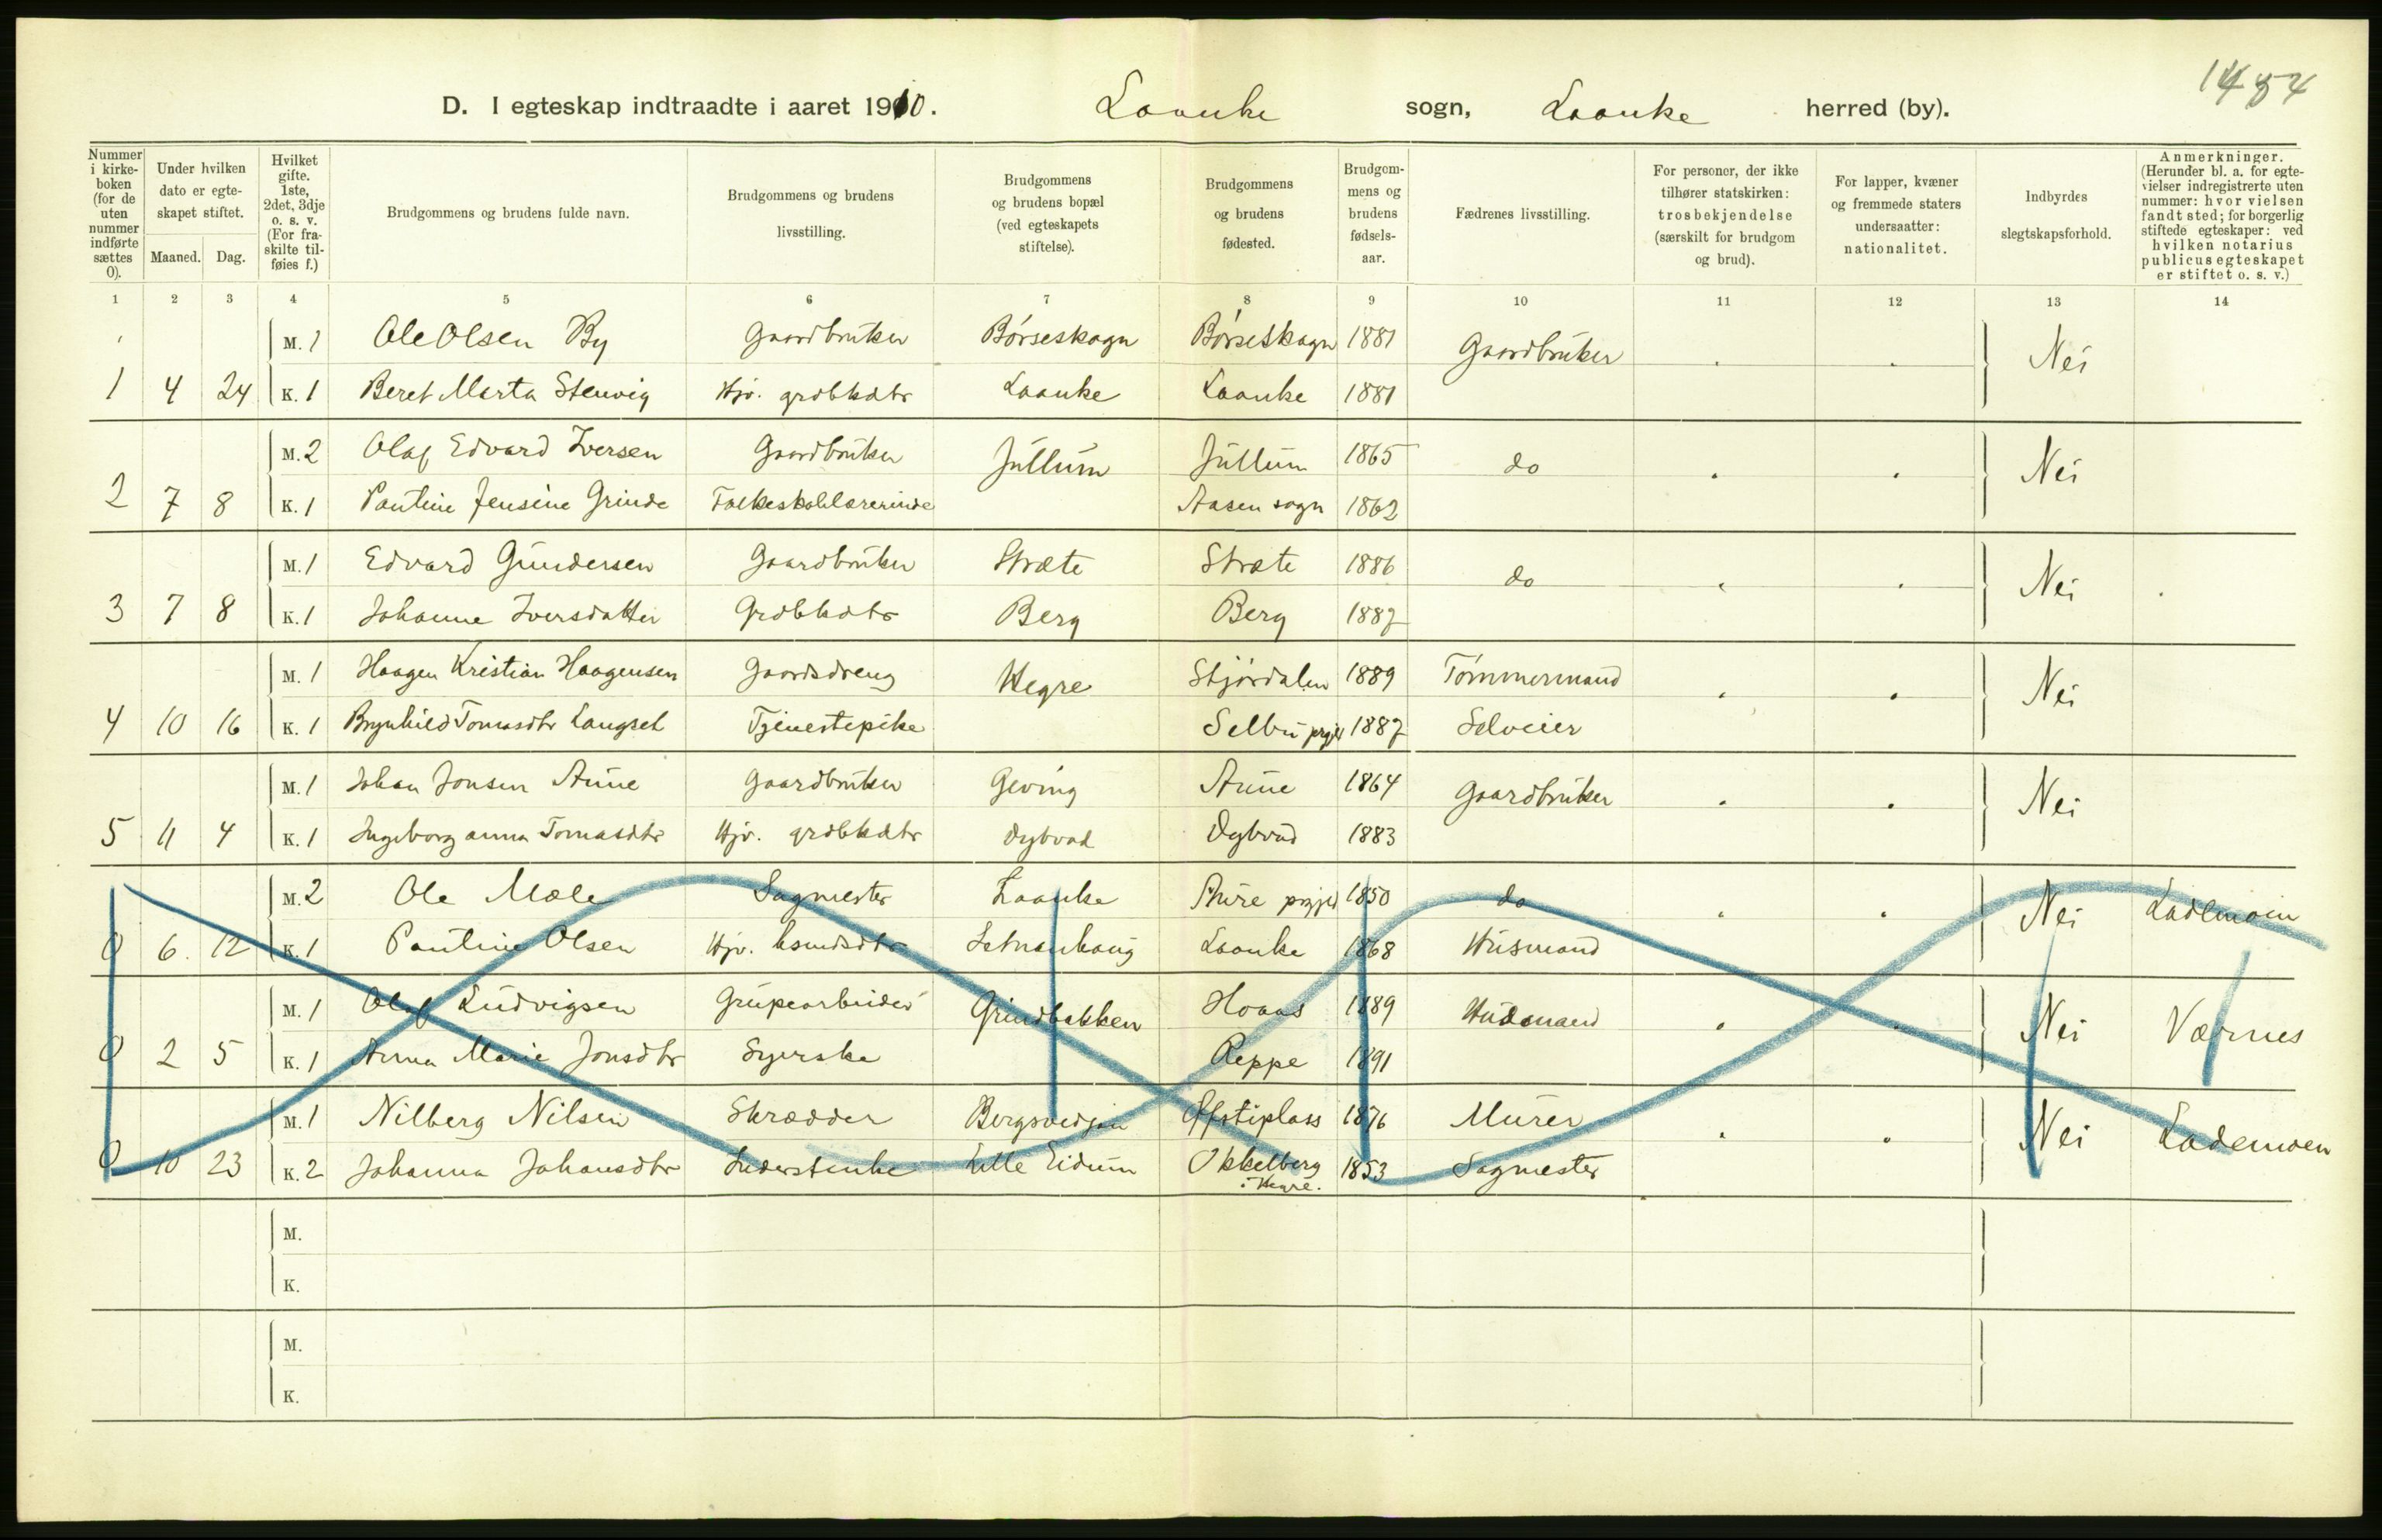 1454
D. I egteskap indtraadte i aaret 1910. Laanke sogn, Laanke herred (by).
Nummer i kirkeboken (for de uten nummer indførte sættes 0). Under hvilken dato er egteskapet stiftet. Maaned. Dag. Hvilket gifte. 1ste, 2det, 3dje o. s. v. (For fraskilte tilføies f.) Brudgommens og brudens fulde navn. Brudgommens og brudens livsstilling. Brudgommens og brudens bopæl (ved egteskapets stiftelse). Brudgommens og brudens fødested. Brudgommens og brudens fødselsaar. Fædrenes livsstilling. For personer, der ikke tilhører statskirken: trosbekjendelse (særskilt for brudgom og brud). For lapper, kvæner og fremmede staters undersaatter: nationalitet. Indbyrdes slegtskapsforhold. Anmerkninger. (Herunder bl. a. for egtevielser indregistrerte uten nummer: hvor vielsen fandt sted; for borgerlig stiftede egteskaper: ved hvilken notarius publicus egteskapet er stiftet o. s. v.)
1 2 3 4 5 6 7 8 9 10 11 12 13 14
M. 1 Ole Olsen By Gaardbruker Børseskogn Børseskogn 1881 Gaardbruker Nei
1 4 24 K. 1 Beret Marta Stenvig Hjv. grdbkdtr Laanke Laanke 1881
M. 2 Olaf Edvard Iversen Gaardbruker Jullum Jullum 1865 do Nei
2 7 8 K. 1 Pauline Jensine Grinde Folkeskolelærerinde Aasen sogn 1862
M. 1 Edvard Gundersen Gaardbruker Stræte Stræte 1886 do Nei
3 7 8 K. 1 Johanne Iversdatter Grdbkdtr Berg Berg 1887
M. 1 Haagen Kristian Haagensen Gaardsdreng Hegre Stjørdalen 1889 Tømmermand Nei
4 10 16 K. 1 Brynhild Tomasdtr Langseth Tjenestepike Selbu prgjld 1887 Selveier
M. 1 Johan Jonsen Aune Gaardbruker Geving Aune 1864 Gaardbruker Nei
5 11 4 K. 1 Ingeborg Anna Tomasdtr Hjv. grdbkdtr Dybvad Dybvad 1883
M. 2 Ole Mæle Sagmester Laanke Aure prgjld 1850 do Nei Lademoen
0 6. 12 K. 1 Pauline Olsen Hjv. hsmdsdtr Setnanhaug Laanke 1868 Husmand
M. 1 Olaf Ludvigsen Grupearbeider Grindbakken Hoaas 1889 Husmand Nei Værnes
0 2 5 K. 1 Anna Marie Jonsdtr Syerske Reppe 1891
M. 1 Nilberg Nilsen Skrædder Bergsvedjan Øfstiplass 1876 Murer Nei Lademoen
0 10 23 K. 2 Johanna Johansdtr Inderstenke Lille Eidum Okkelberg i Hegre. 1853 Sagmester
M.
K.
M.
K.